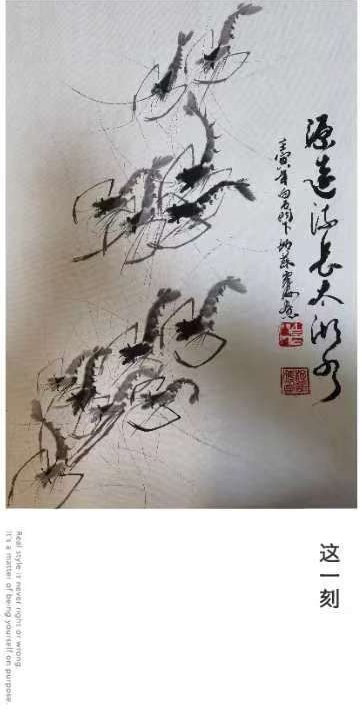 源远流长太湖水
壬寅年白石門下
这一刻
Real style is never right or wrong.
It's a matter of being yourself on purpose.